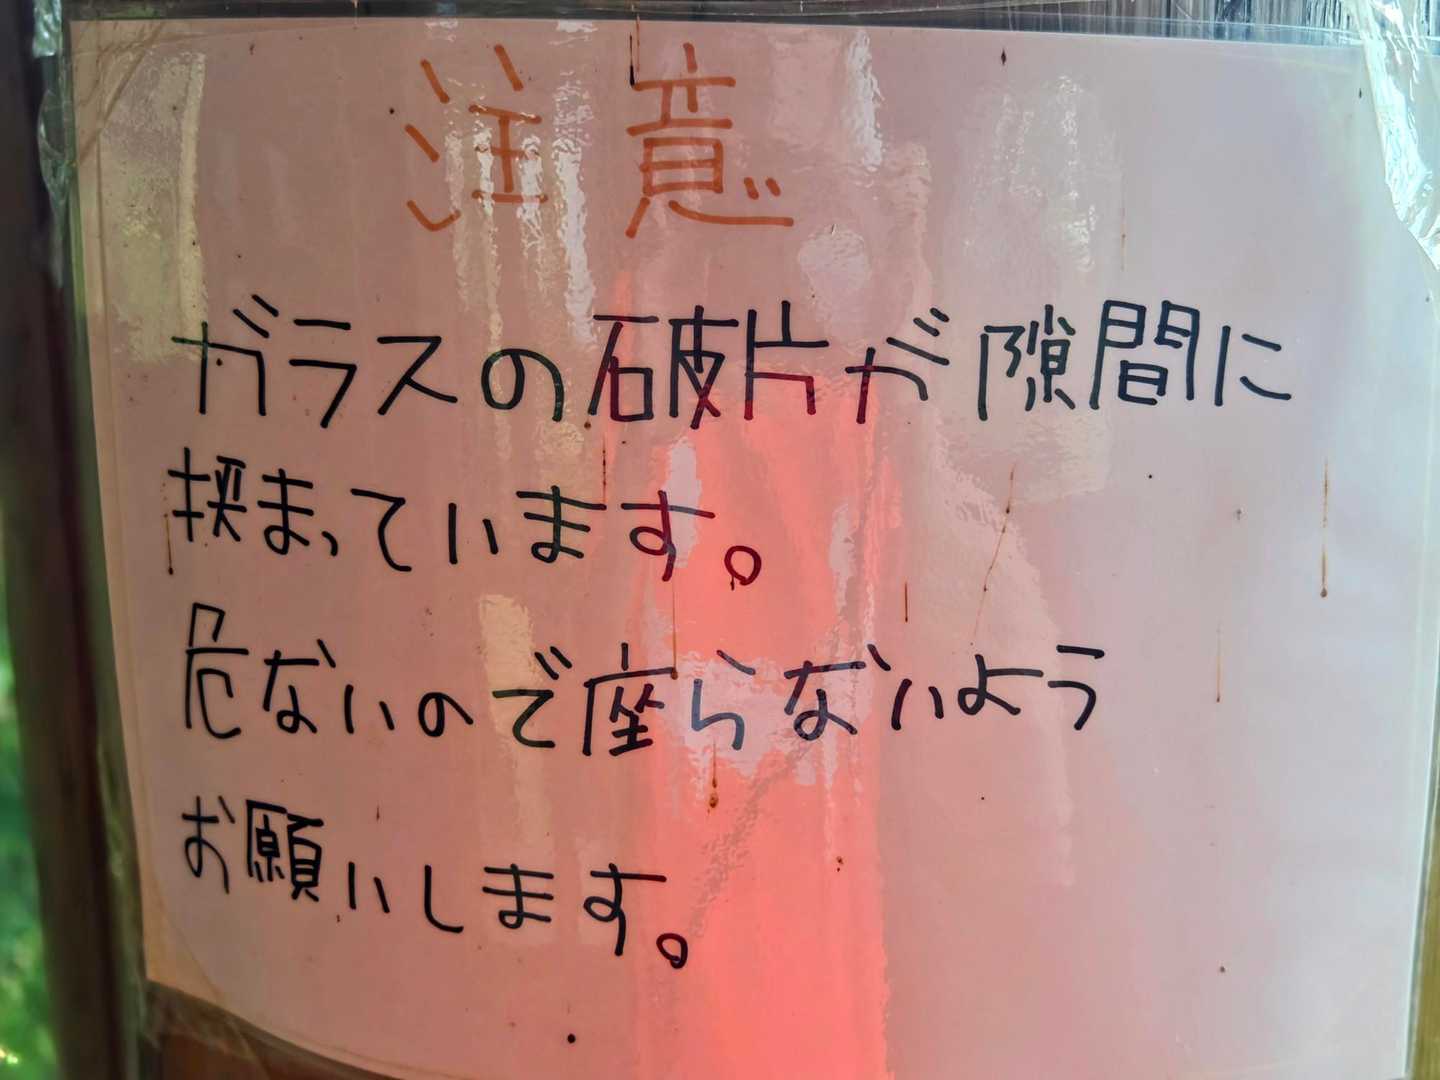 注意
ガラスの破片が隙間に
挟まっています。
危ないので座らないよう
お願いします。